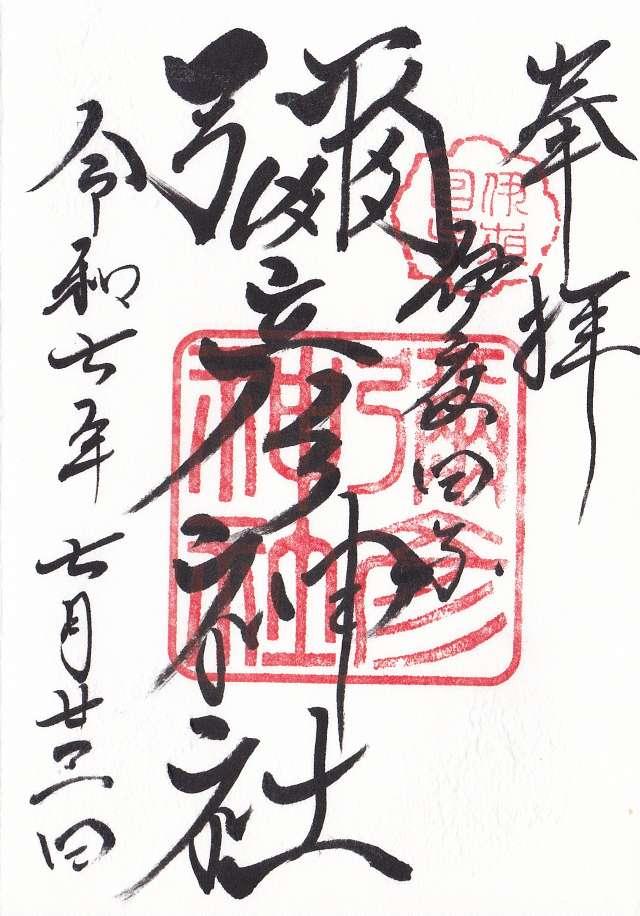 奉拝
伊夜日子
彌彦神社
令和七年七月廿日
彌彦
神社